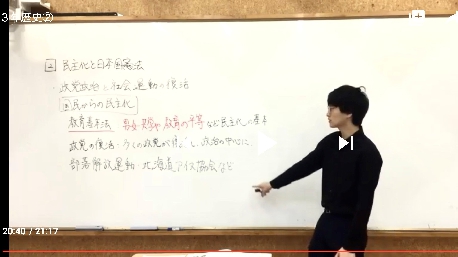 3年歴史②
4 民主化と日本国憲法
・政党政治と社会運動の復活
国民からの民主化
教育基本法 男女共学や教育の平等など民主化の基本
政党の復活：多くの政党が復活し、政治の中心に
部落解放運動 北海道アイヌ協会など
20:40 / 21:17